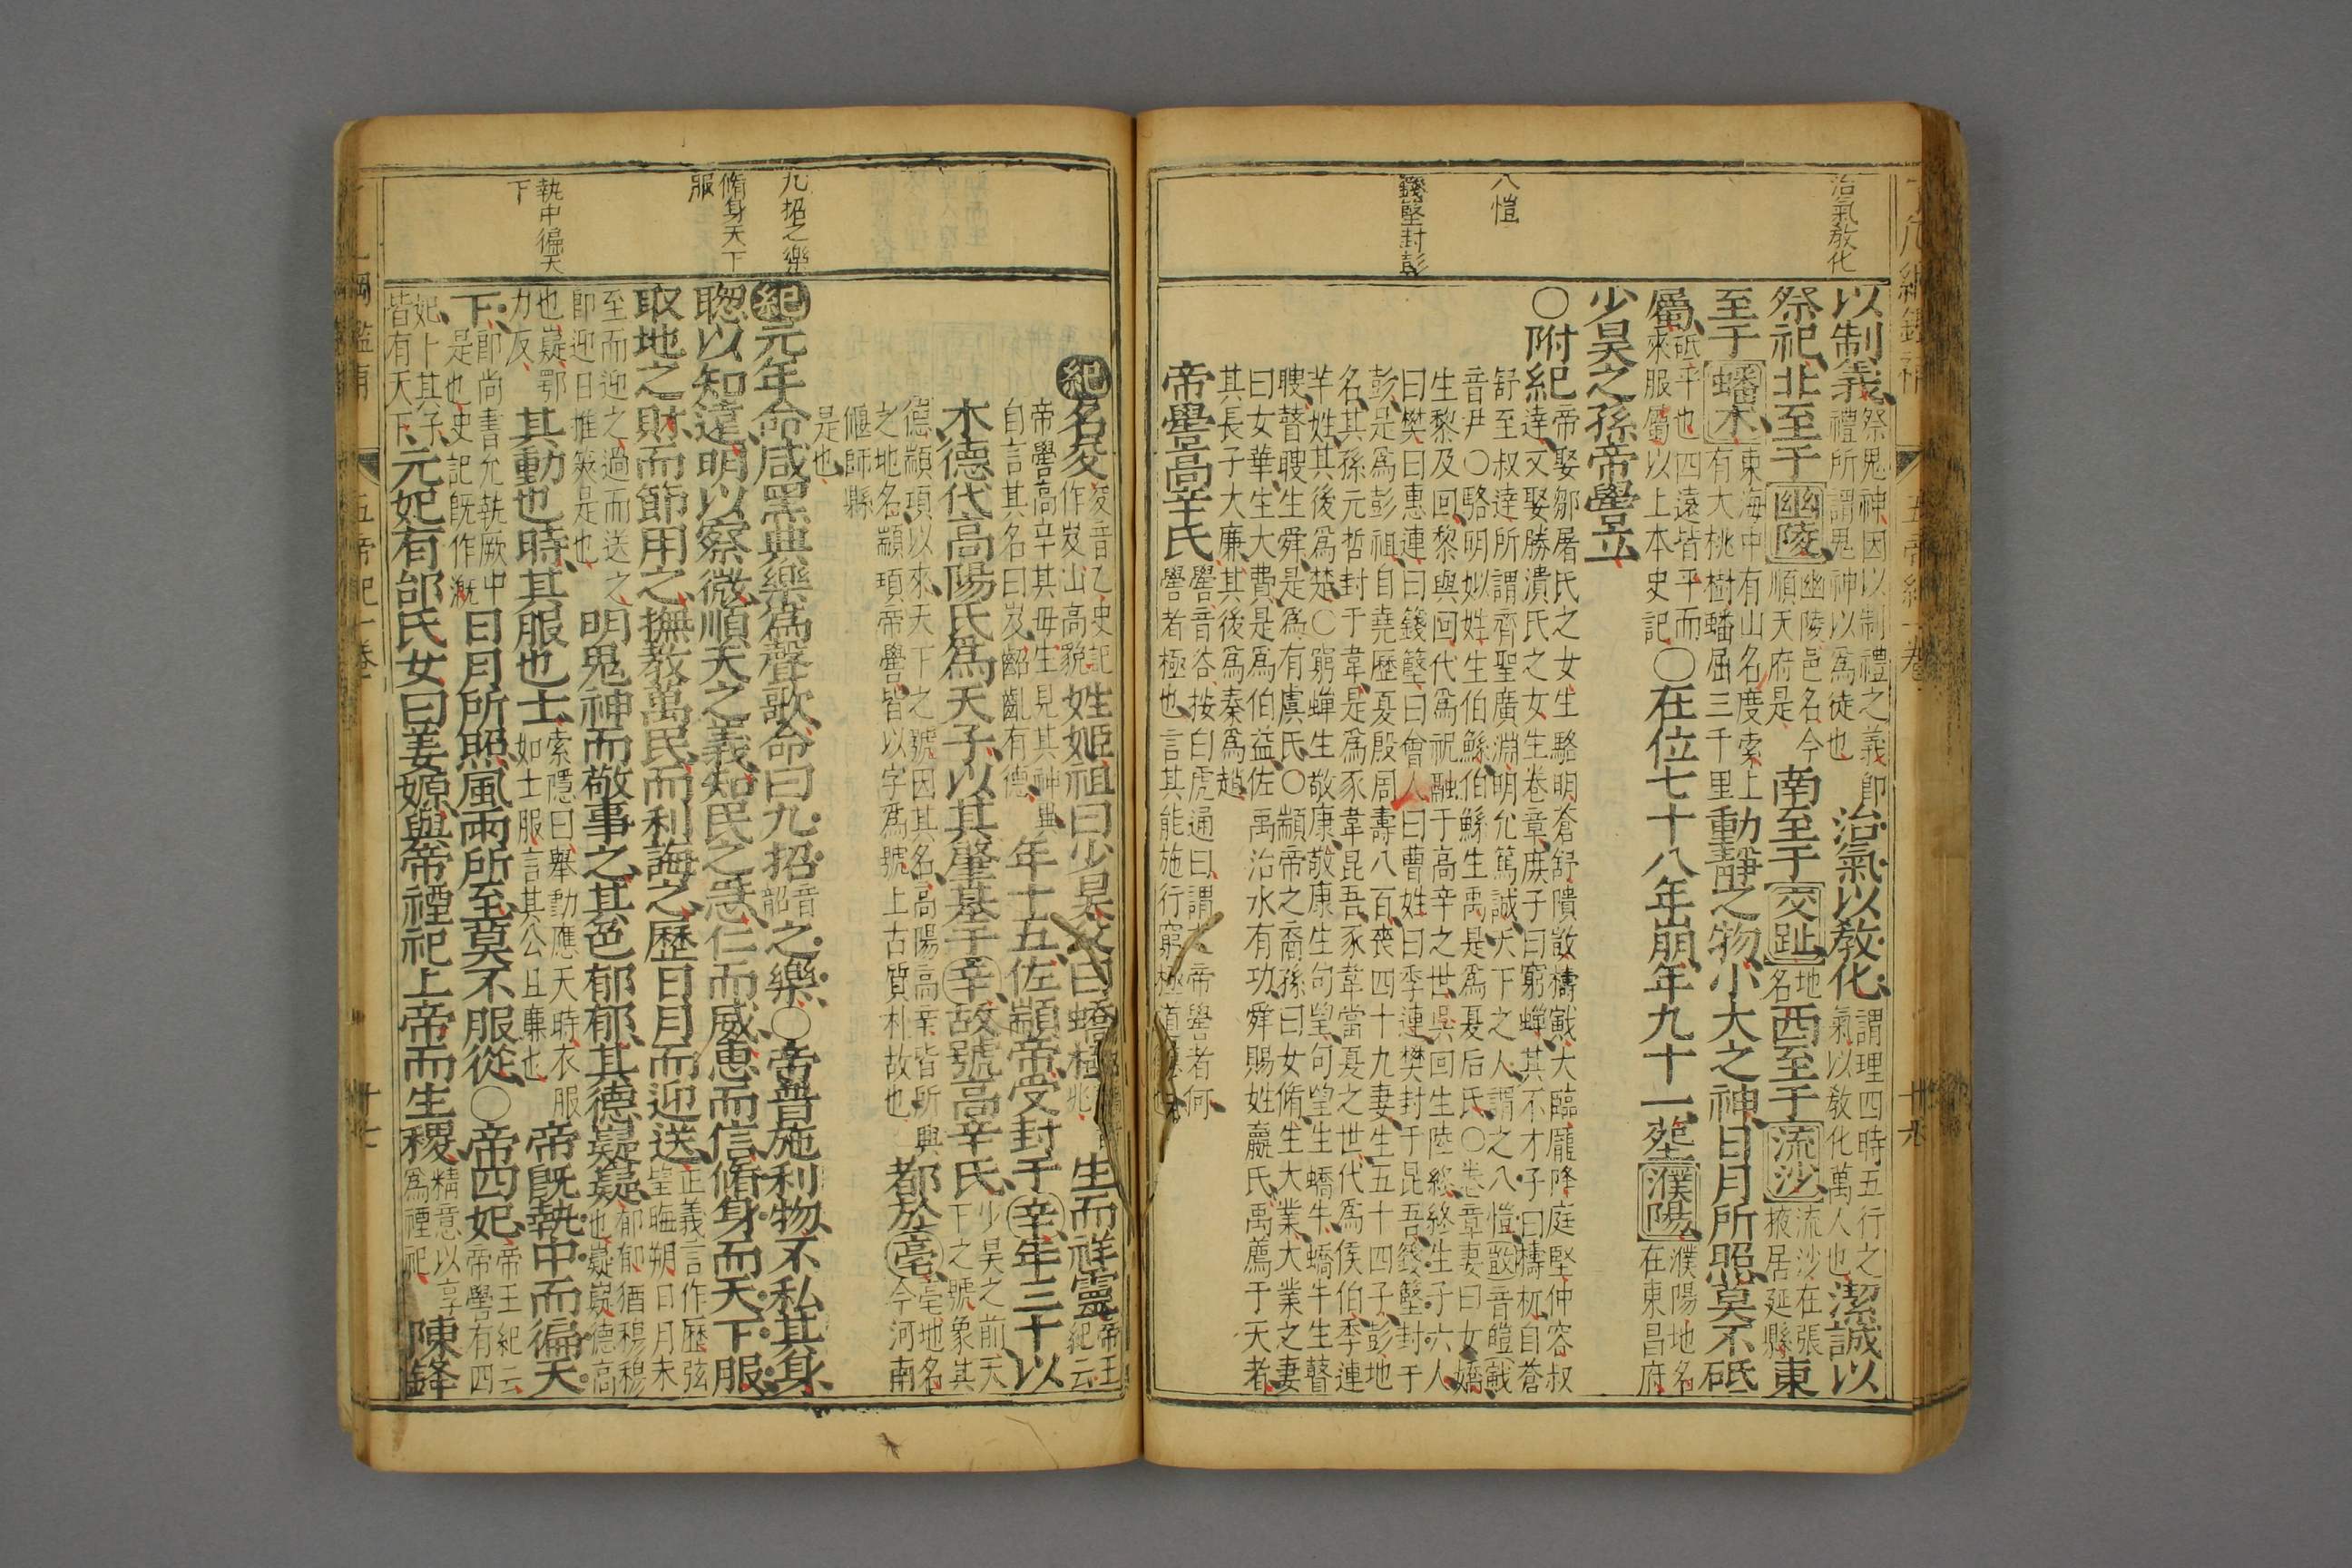 治氣教化
八愷
籛鏗封彭
以制義祭鬼神因以制禮之義即
禮所謂鬼神以爲徒也
治氣以教化謂理四時五行之
氣以敎化萬人也
潔誠以
祭祀北至于幽陵幽陵邑名今
順天府是
南至于交趾地
名
西至于流沙流沙在張
掖居延縣
東
至于蟠木東海中有山名度索上
有大桃樹蟠屈三千里
動靜之物小大之神日月所照莫不砥
屬砥平也四遠皆平而
來服屬以上本史記
○在位七十八年崩年九十一塟濮陽濮陽地名
在東昌府
少昊之孫帝嚳立
○附紀
帝娶鄒屠氏之女生駱明蒼舒隤敳檮戭大臨厖降庭堅仲容叔
達又娶勝濆氏之女生卷章庶子曰窮蟬其不才子曰檮杌自蒼
舒至叔達所謂齊聖廣淵明允篤誠天下之人謂之八愷敳音皚戭
音尹○駱明姒姓生伯鯀伯鯀生禹是爲夏后氏○卷章妻曰女嬌
生黎及回黎與回代爲祝融于高辛之世吳回生陸終終生子六人
曰樊曰惠連曰籛鏗曰會人曰曹姓曰季連樊封于昆吾籛鏗封于
彭是爲彭祖自堯歷夏殷周壽八百喪四十九妻生五十四子彭地
名其孫元哲封于韋是爲豕韋昆吾豕韋當夏之世代爲侯伯季連
羋姓其後爲楚○窮蟬生敬康敬康生句望句望生蟜牛蟜牛生瞽
瞍瞽瞍生舜是爲有虞氏○顓帝之裔孫曰女脩生大業大業之妻
曰女華生大費是爲伯益佐禹治水有功舜賜姓嬴氏禹薦于天者
其長子大廉其後爲秦爲趙
帝嚳高辛氏嚳音谷按白虎通曰謂之帝嚳者何
嚳者極也言其能施行窮極道德也
紀名夋夋音乙史記
作岌山高貌
姓姬祖曰少昊父曰蟜極生而祥靈帝王
紀云
帝嚳高辛其母生見其神異
自言其名曰岌齠齔有德
年十五佐顓帝受封于辛年三十以
木德代高陽氏爲天子以其肇基于辛故號高辛氏少昊之前天
下之號象其
德顓頊以來天下之號因其名高陽高辛皆所興
之地名顓頊帝嚳皆以字爲號上古質朴故也
都於亳亳地名
今河南
偃師縣
是也
九招之樂
脩身天下
服
執中徧天
下
紀元年命咸黑典樂爲聲歌命曰九招音
韶
之樂○帝普施利物不私其身
聰以知遠明以察微順天之義知民之急仁而威惠而信脩身而天下服
取地之財而節用之撫教萬民而利誨之歷日月而迎送正義言作歷弦
望晦朔日月未
至而迎之過而送之
即迎日推筴是也
明鬼神而敬事之其色郁郁其德嶷嶷郁郁猶穆穆
也嶷嶷德高
也嶷鄂
力反
其動也時其服也士索隱曰舉動應天時衣服
如士服言其公且廉也
帝旣執中而徧天
下即尚書允執厥中
是也史記旣作漑
日月所照風雨所至莫不服從○帝四妃帝王紀云
帝嚳有四
妃卜其子
皆有天下
元妃有邰氏女曰姜嫄與帝禋祀上帝而生稷精意以享
爲禋祀
陳鋒
五帝紀一卷
十七